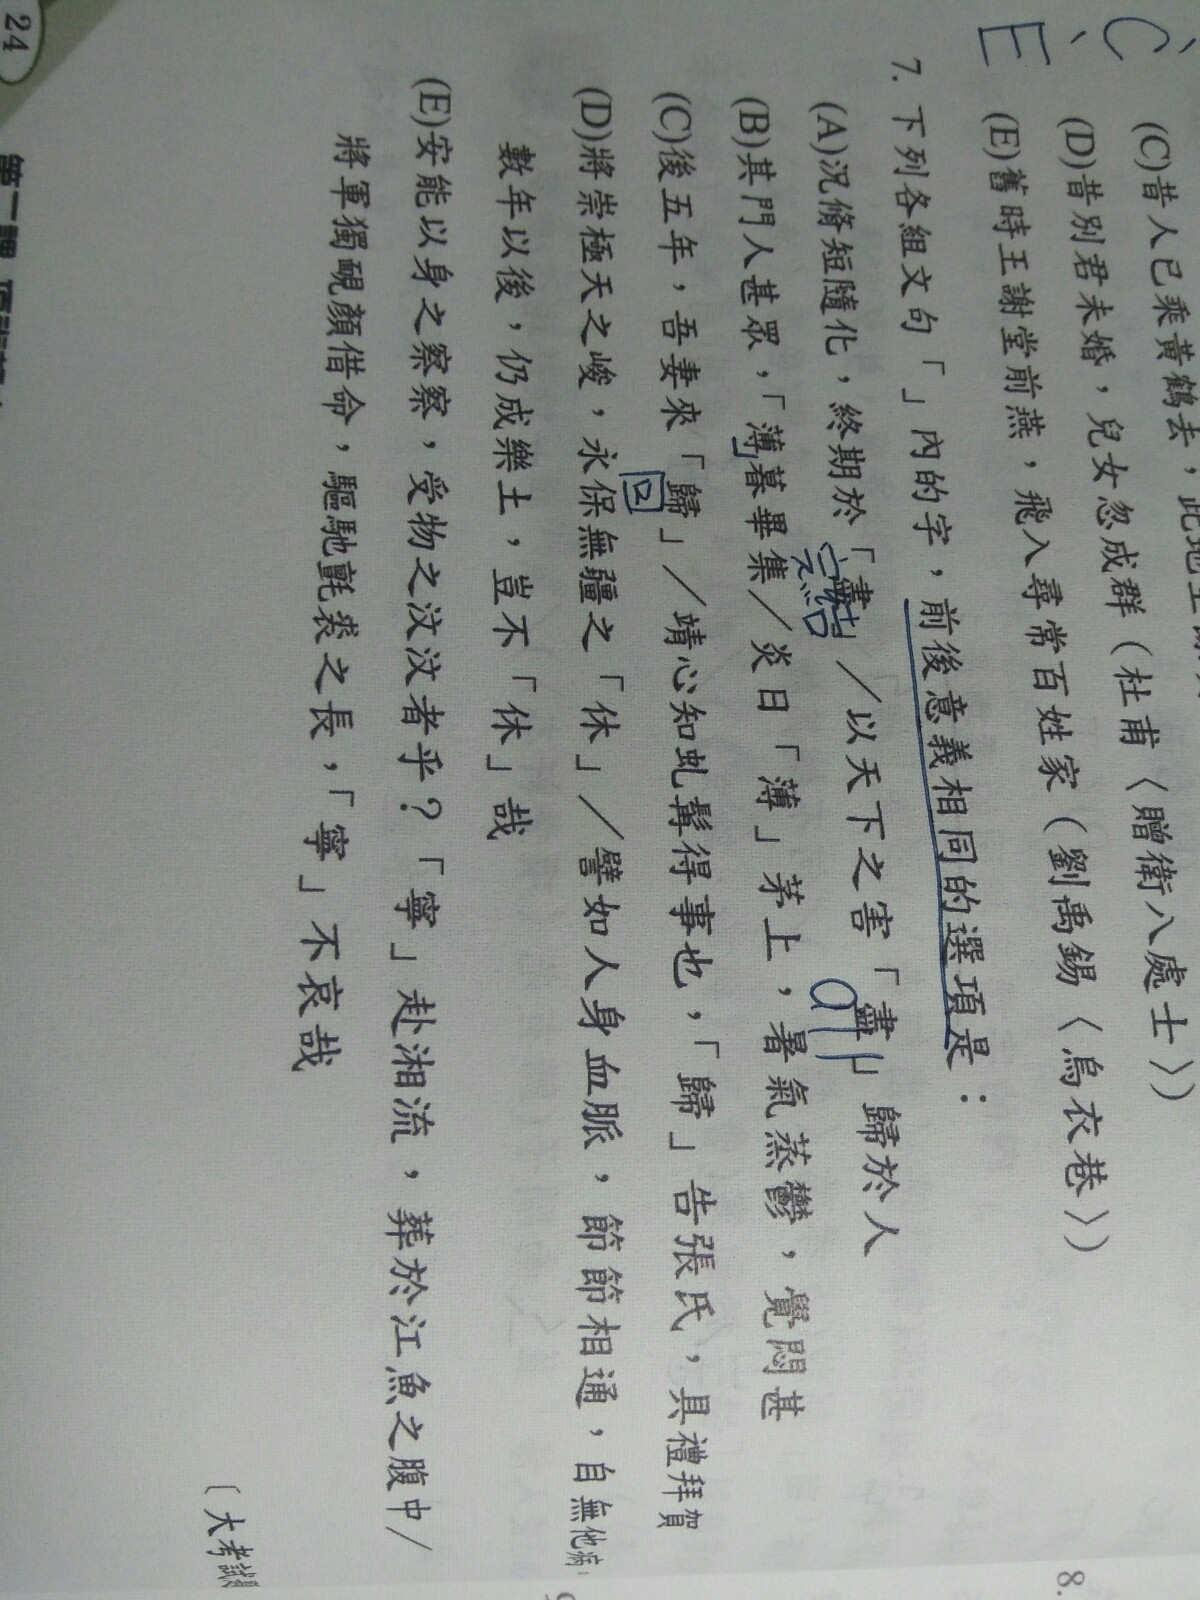 C、
E
(C)昔人已乘黃鶴去，此地空
(D)昔別君未婚，兒女忽成群（杜甫〈贈衛八處士〉）
(E)舊時王謝堂前燕，飛入尋常百姓家（劉禹錫〈烏衣巷〉）
7. 下列各組文句「」內的字，前後意義相同的選項是：
(A)況脩短隨化，終期於「盡」／以天下之害「盡」歸於人
(B)其門人甚眾，「薄」暮畢集／炎日「薄」茅上，暑氣蒸鬱，覺悶甚
(C)後五年，吾妻來「歸」／靖心知虬髯得事也，「歸」告張氏，具禮拜賀
回
(D)將崇極天之峻，永保無疆之「休」／譬如人身血脈，節節相通，自無他病；
數年以後，仍成樂土，豈不「休」哉
(E)安能以身之察察，受物之汶汶者乎？「寧」赴湘流，葬於江魚之腹中／
將軍獨靦顏借命，驅馳氈裘之長，「寧」不哀哉
〔大考試題
8.
24
第一課